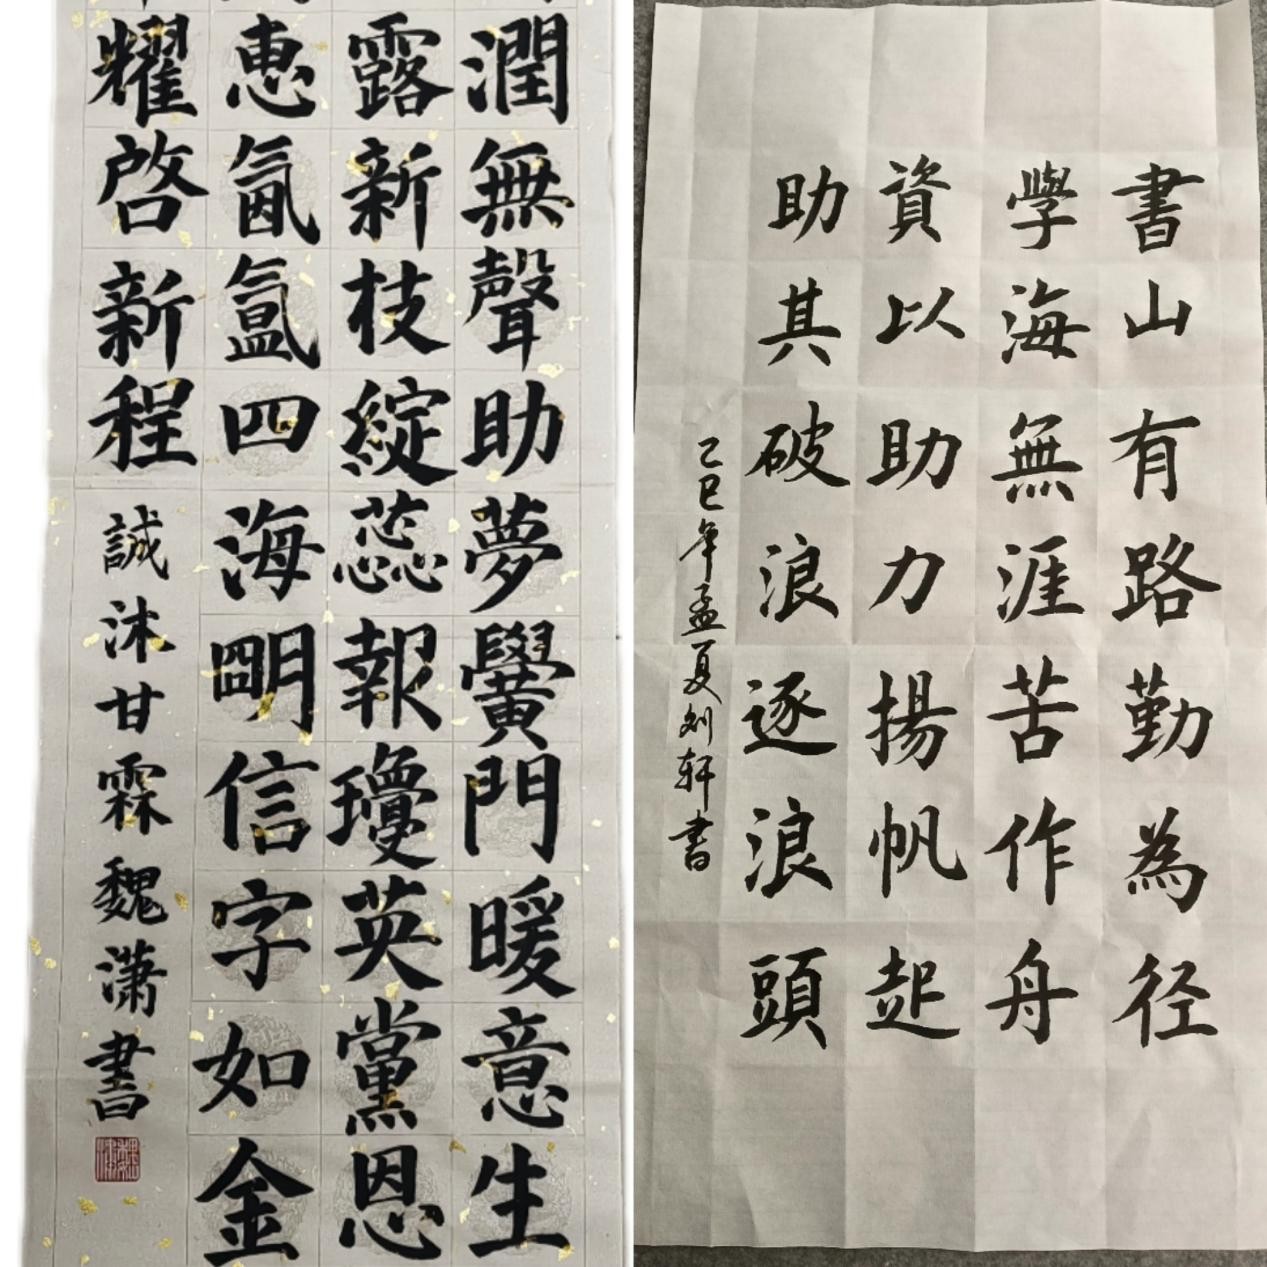 潤無聲助夢黌門暖意生
露新枝綻蕊報瓊英黨恩
惠氤氳四海朙信字如金
耀啓新程
誠沐甘霖魏潇書
書山有路勤為径
學海無涯苦作舟
資以助力揚帆起
助其破浪逐浪頭
乙巳年孟夏刘轩書